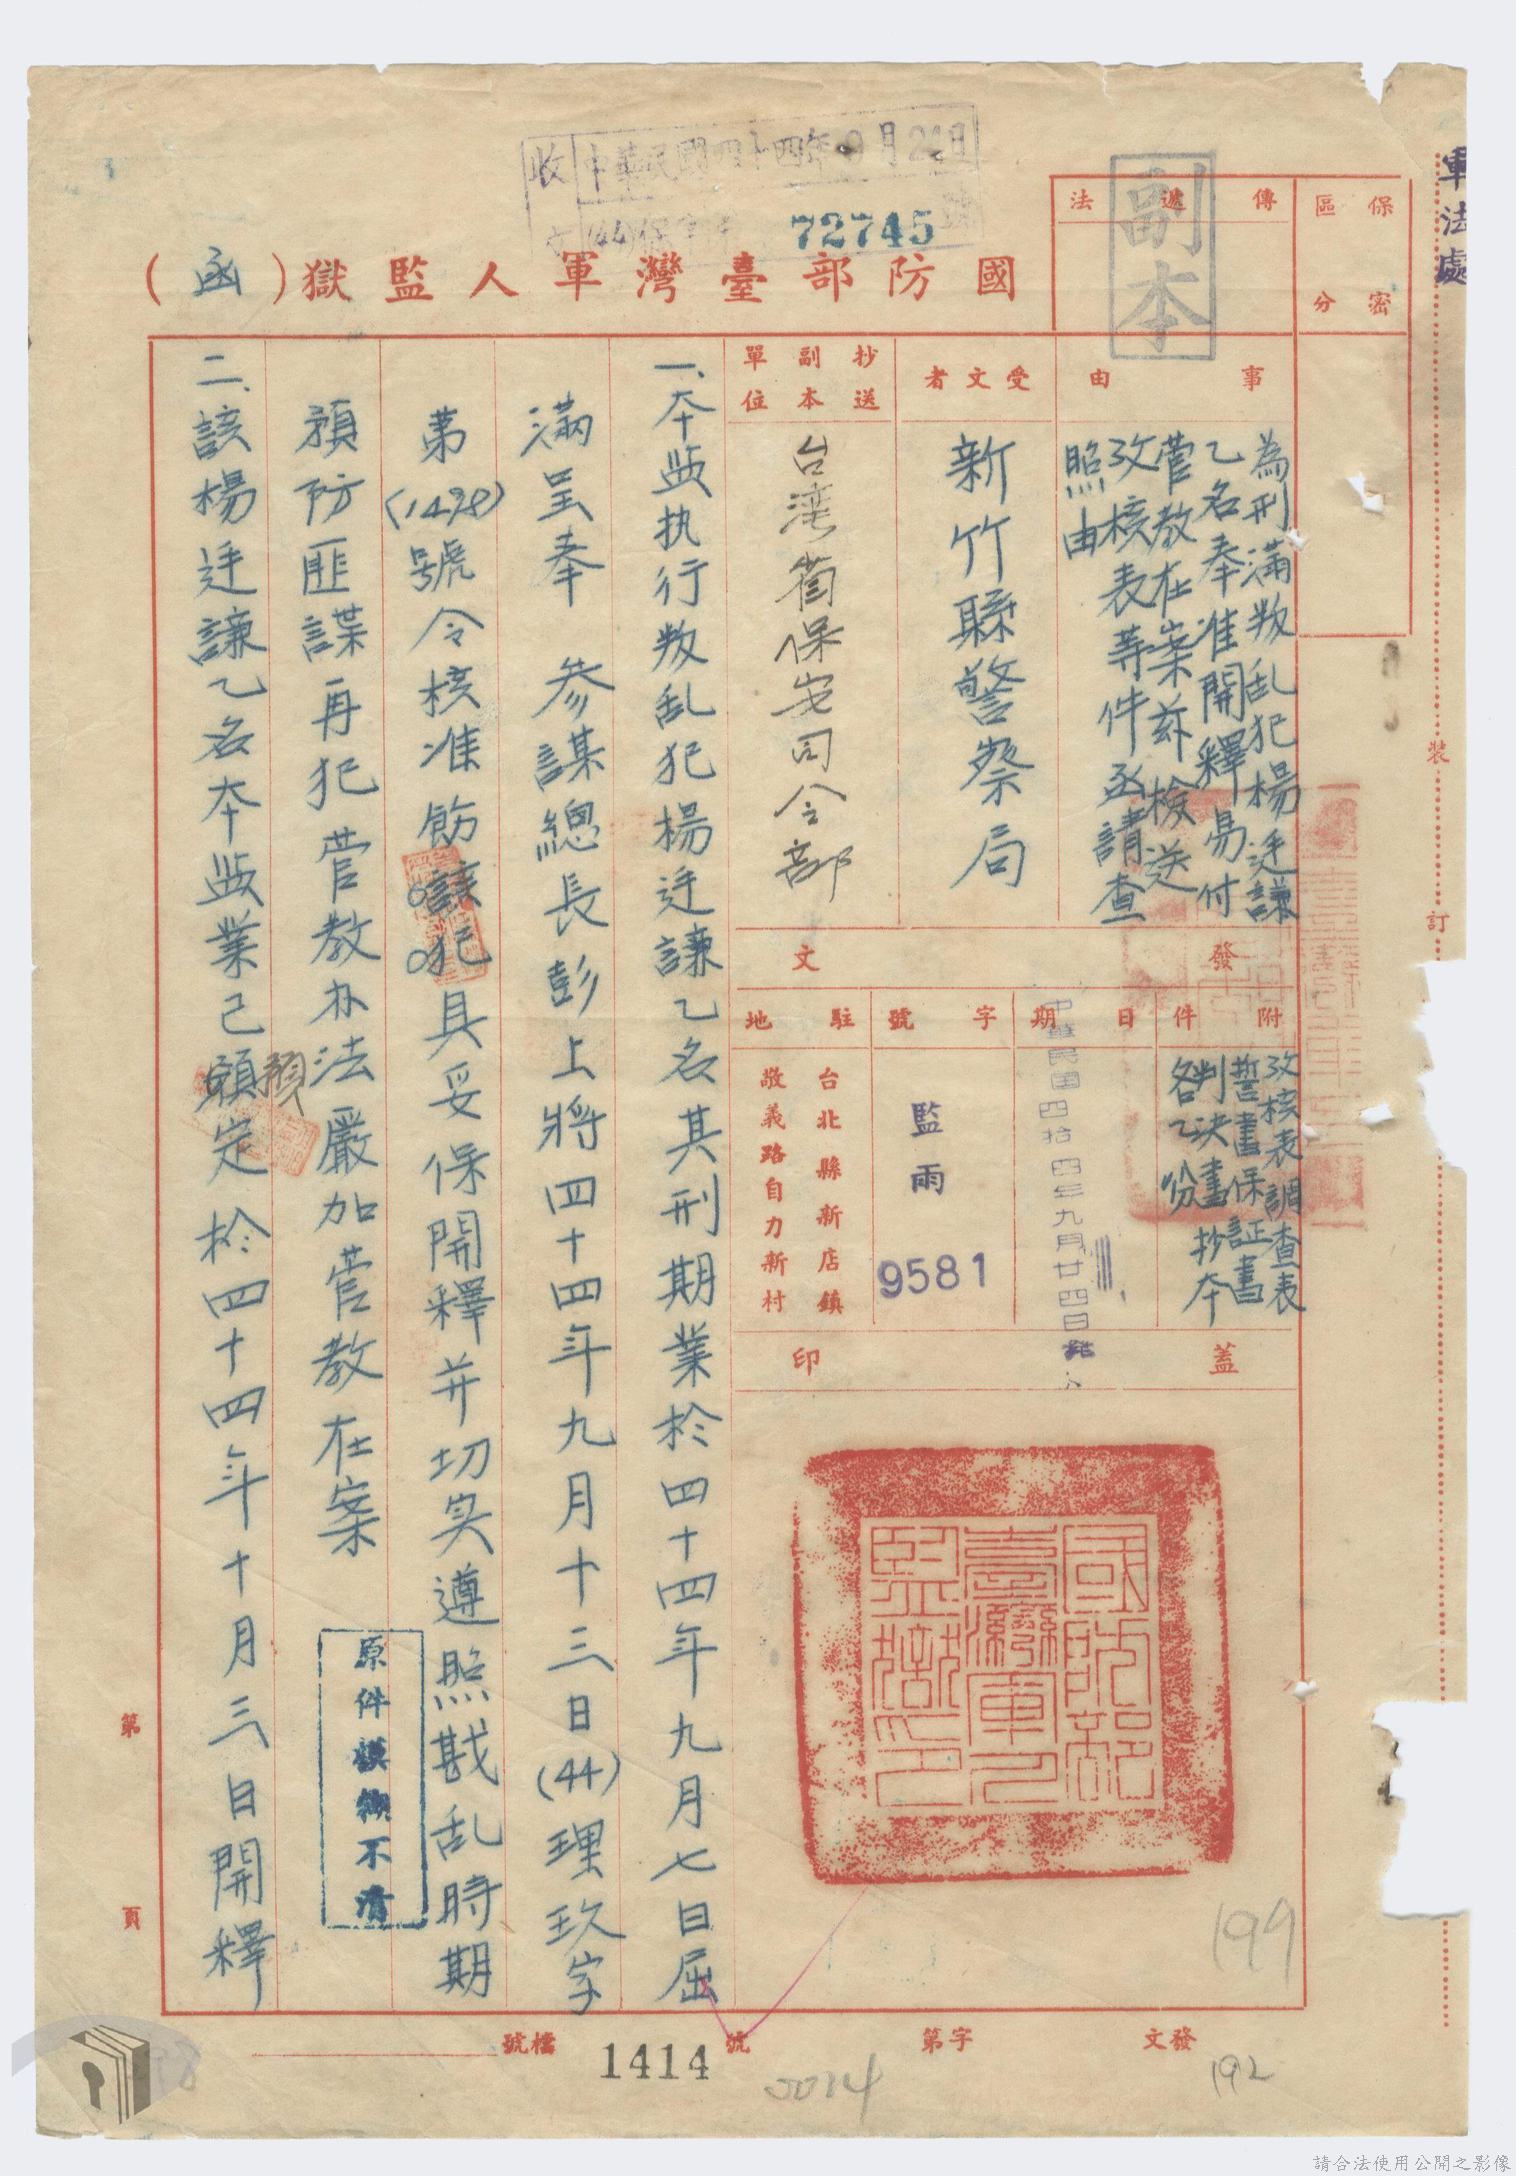 軍法處
保密
區分
傳遞法
副本
收文
中華民國四十四年9月24日
72745
國防部臺灣軍人監獄(函)
事由
為刑滿叛乱犯楊迋謙
乙名奉准開釋昜付
菅教在案茲檢送
攷核表等件函請查
照由
受文者
新竹縣警察局
抄送副本單位
台湾省保安司令部
發文
附件
攷核表調查表
誓書保証書
判決書抄本
各乙份
日期
中華民国四拾四年九月廿四日
字號
監雨
9581
駐地
台北縣新店鎮
敬義路自力新村
蓋印
國防部
臺灣軍人
監獄印
一、本监执行叛乱犯楊迋謙乙名其刑期業於四十四年九月七日屆
滿呈奉 參謀總長彭上將四十四年九月十三日(44)理玖字
第(1498)號令核准飭該犯具妥保開釋并切实遵照戡乱時期
預防匪諜再犯菅教办法嚴加菅教在案
二、該楊迋謙乙名本监業已預定於四十四年十月三日開釋
原件模糊不清
裝
訂
第
頁
199
發文
字第
號
檔號
1414
192
請合法使用公開之影像